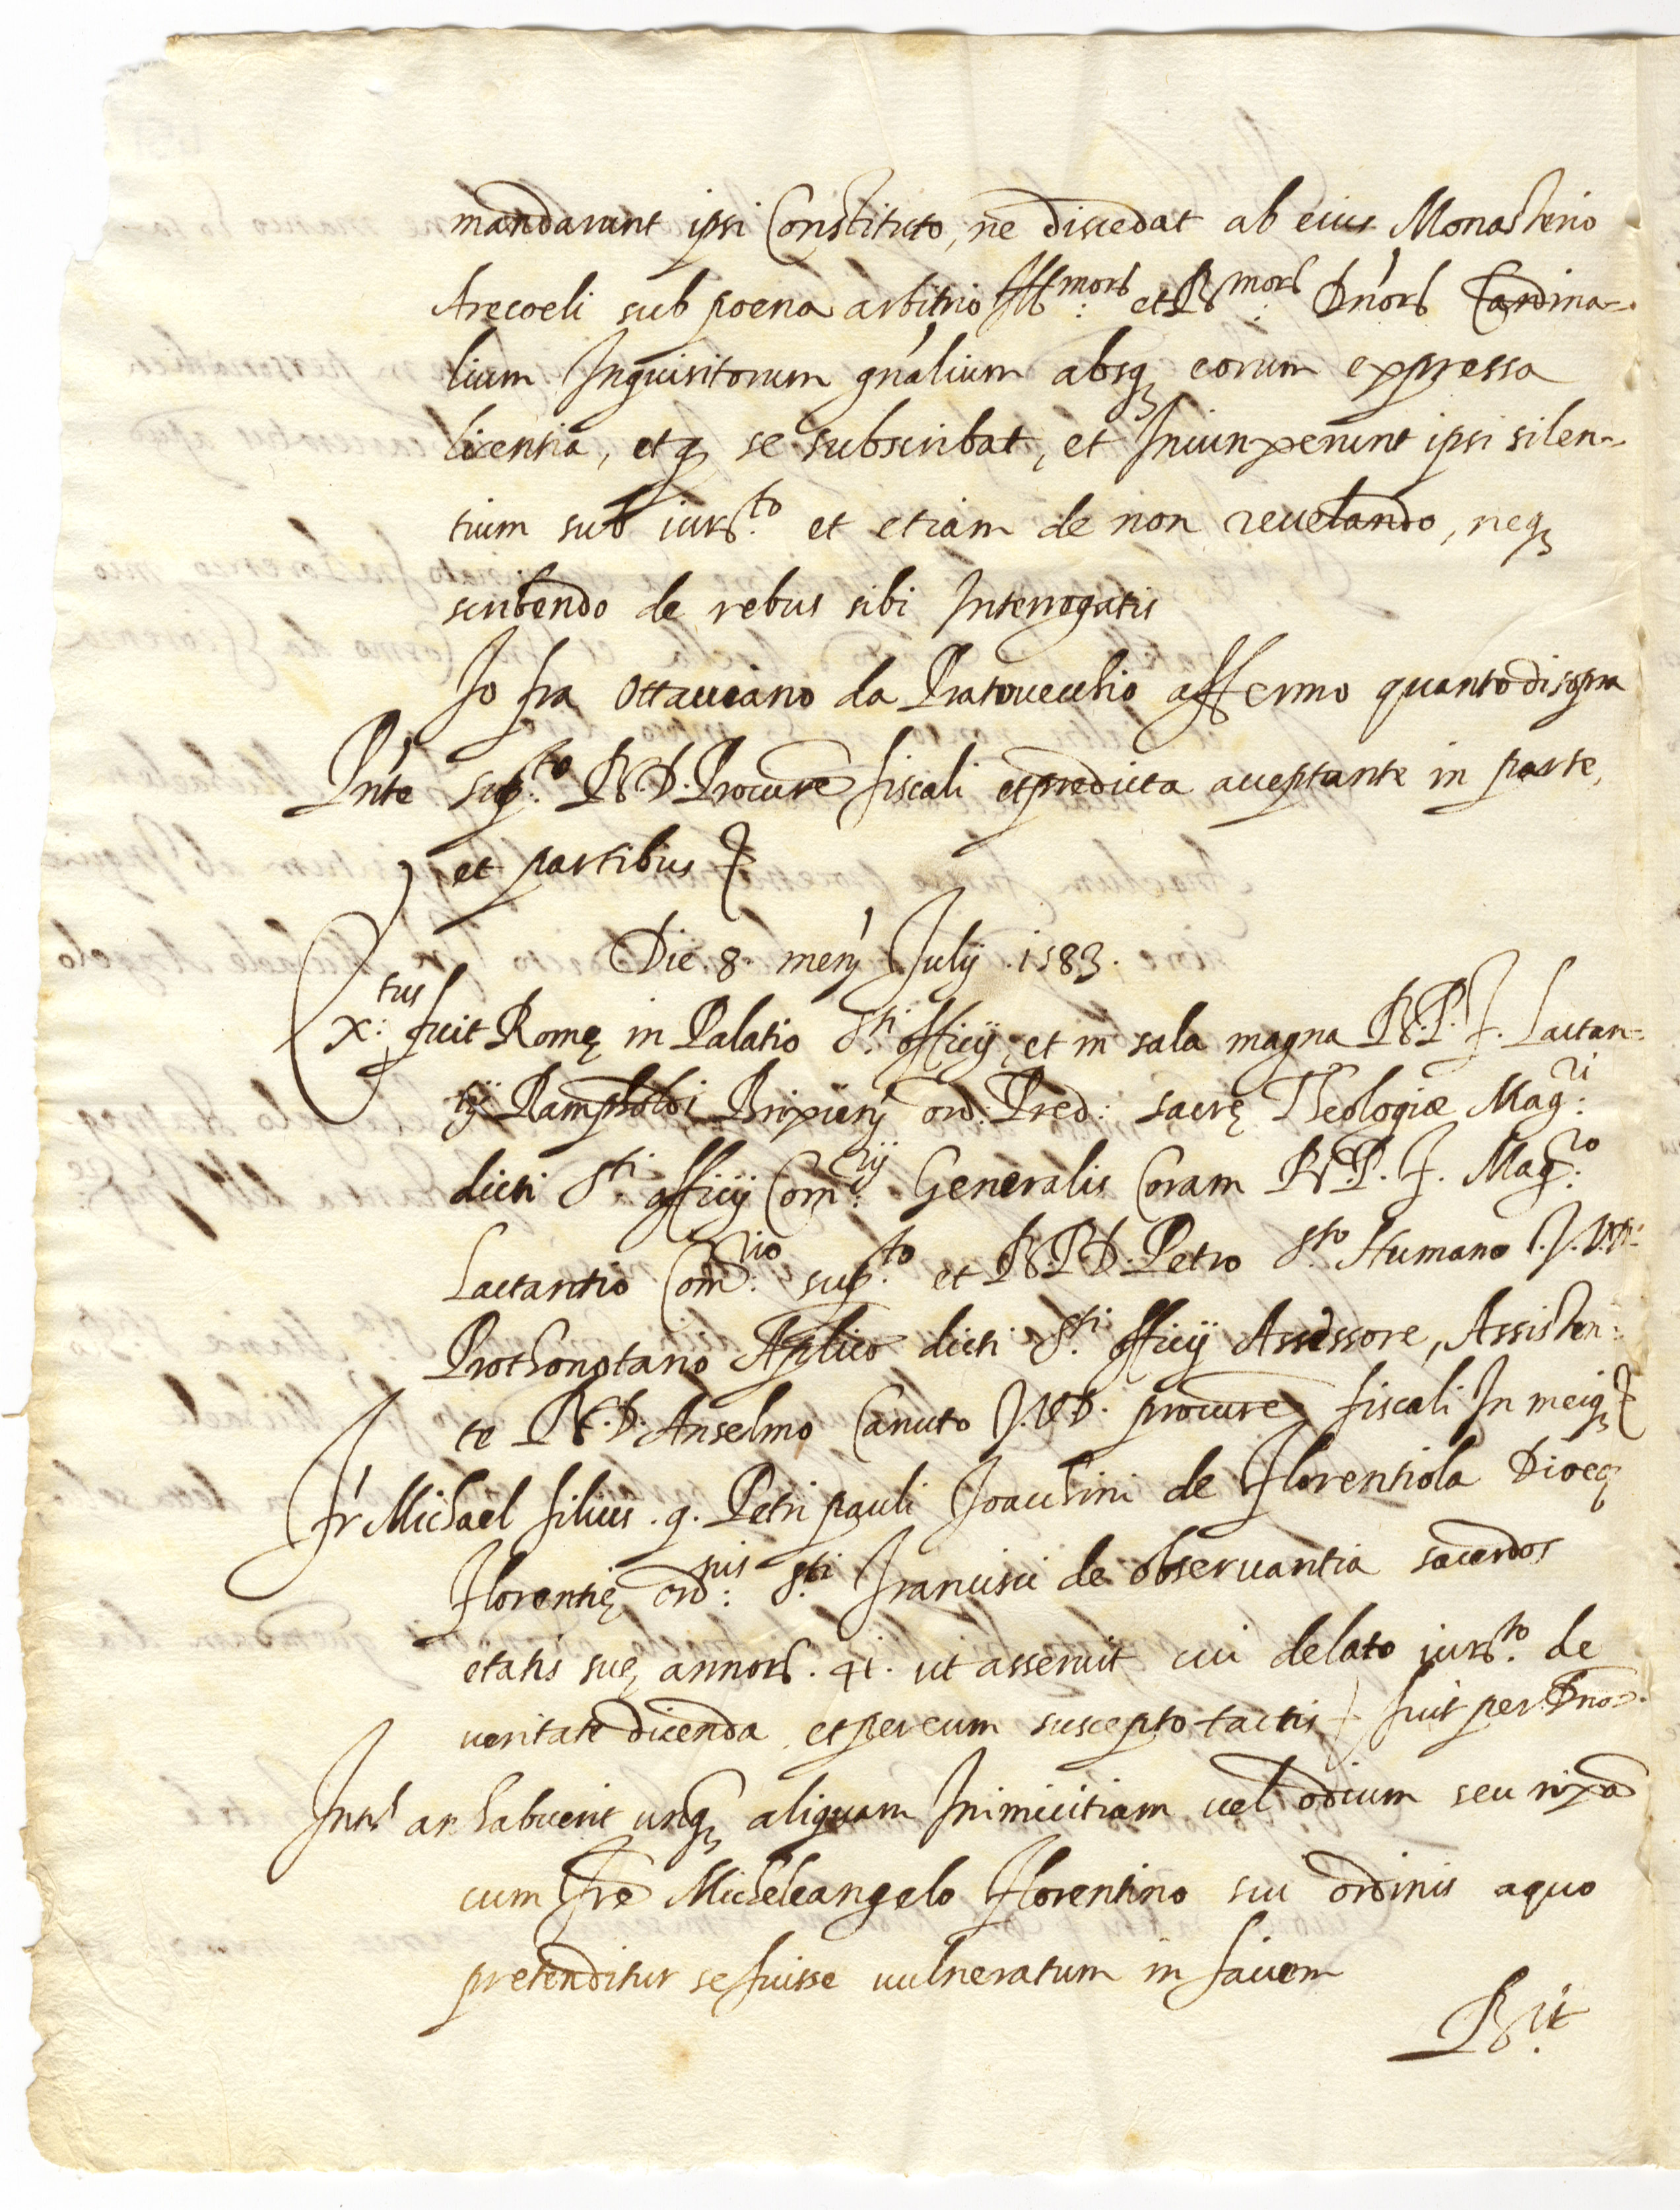 mandarunt ipsi Constituto, ne discedat ab eius Monasterio
Arecoeli sub poena arbitrio Ill:^mor et R:^mor Dnor Cardina-
lium Inquisitorum gnalium absq eorum expressa
licentia, et q se subscribat, et Iniunxerunt ipsi silen-
tium sub iur.^to et etiam de non reuelando, neq
scribendo de rebus sibi Interrogatis
Io fra Ottauiano da Pratouecchio affermo quanto disopra
Pnte sup.^to R.D. Procure fiscali et predicta acceptante in parte,
et partibus
Die .8. mens Julij .1583.
X:^tus fuit Romę in Palatio S.^ti officij, et in sala magna R.P.F. Lactan-
tij Brixiens ord: Pred: sacrę Theologiæ Mag:^ri
dicti S.^ti officij Com:^rij Generalis Coram R.P.F. Mag:^ro
Lactantio Com:^rio sup.^to et R.P.D. Petro S.^to Humano
Prothonotario Aplico dicti S.^ti officij Assessore, Assisten:
te R.D. Anselmo Canuto J.V.D. procure fiscali In meiq
Fr Michael filius .q. Petri pauli Joachini de Florentiola Dioeq
Florentię ord:^nis S.^ti Francisci de obseruantia sacerdos
etatis suę annor .41. ut asseruit cui delato iur.^to de
ueritate dicenda et per eum suscepto tactis fuit per Dno.
Intr an habuerit unq aliquam Inimicitiam uel odium seu rixa
cum fre Micheleangelo Florentino sui ordinis a quo
pretenditur se fuisse uulneratum in faciem
R.^it